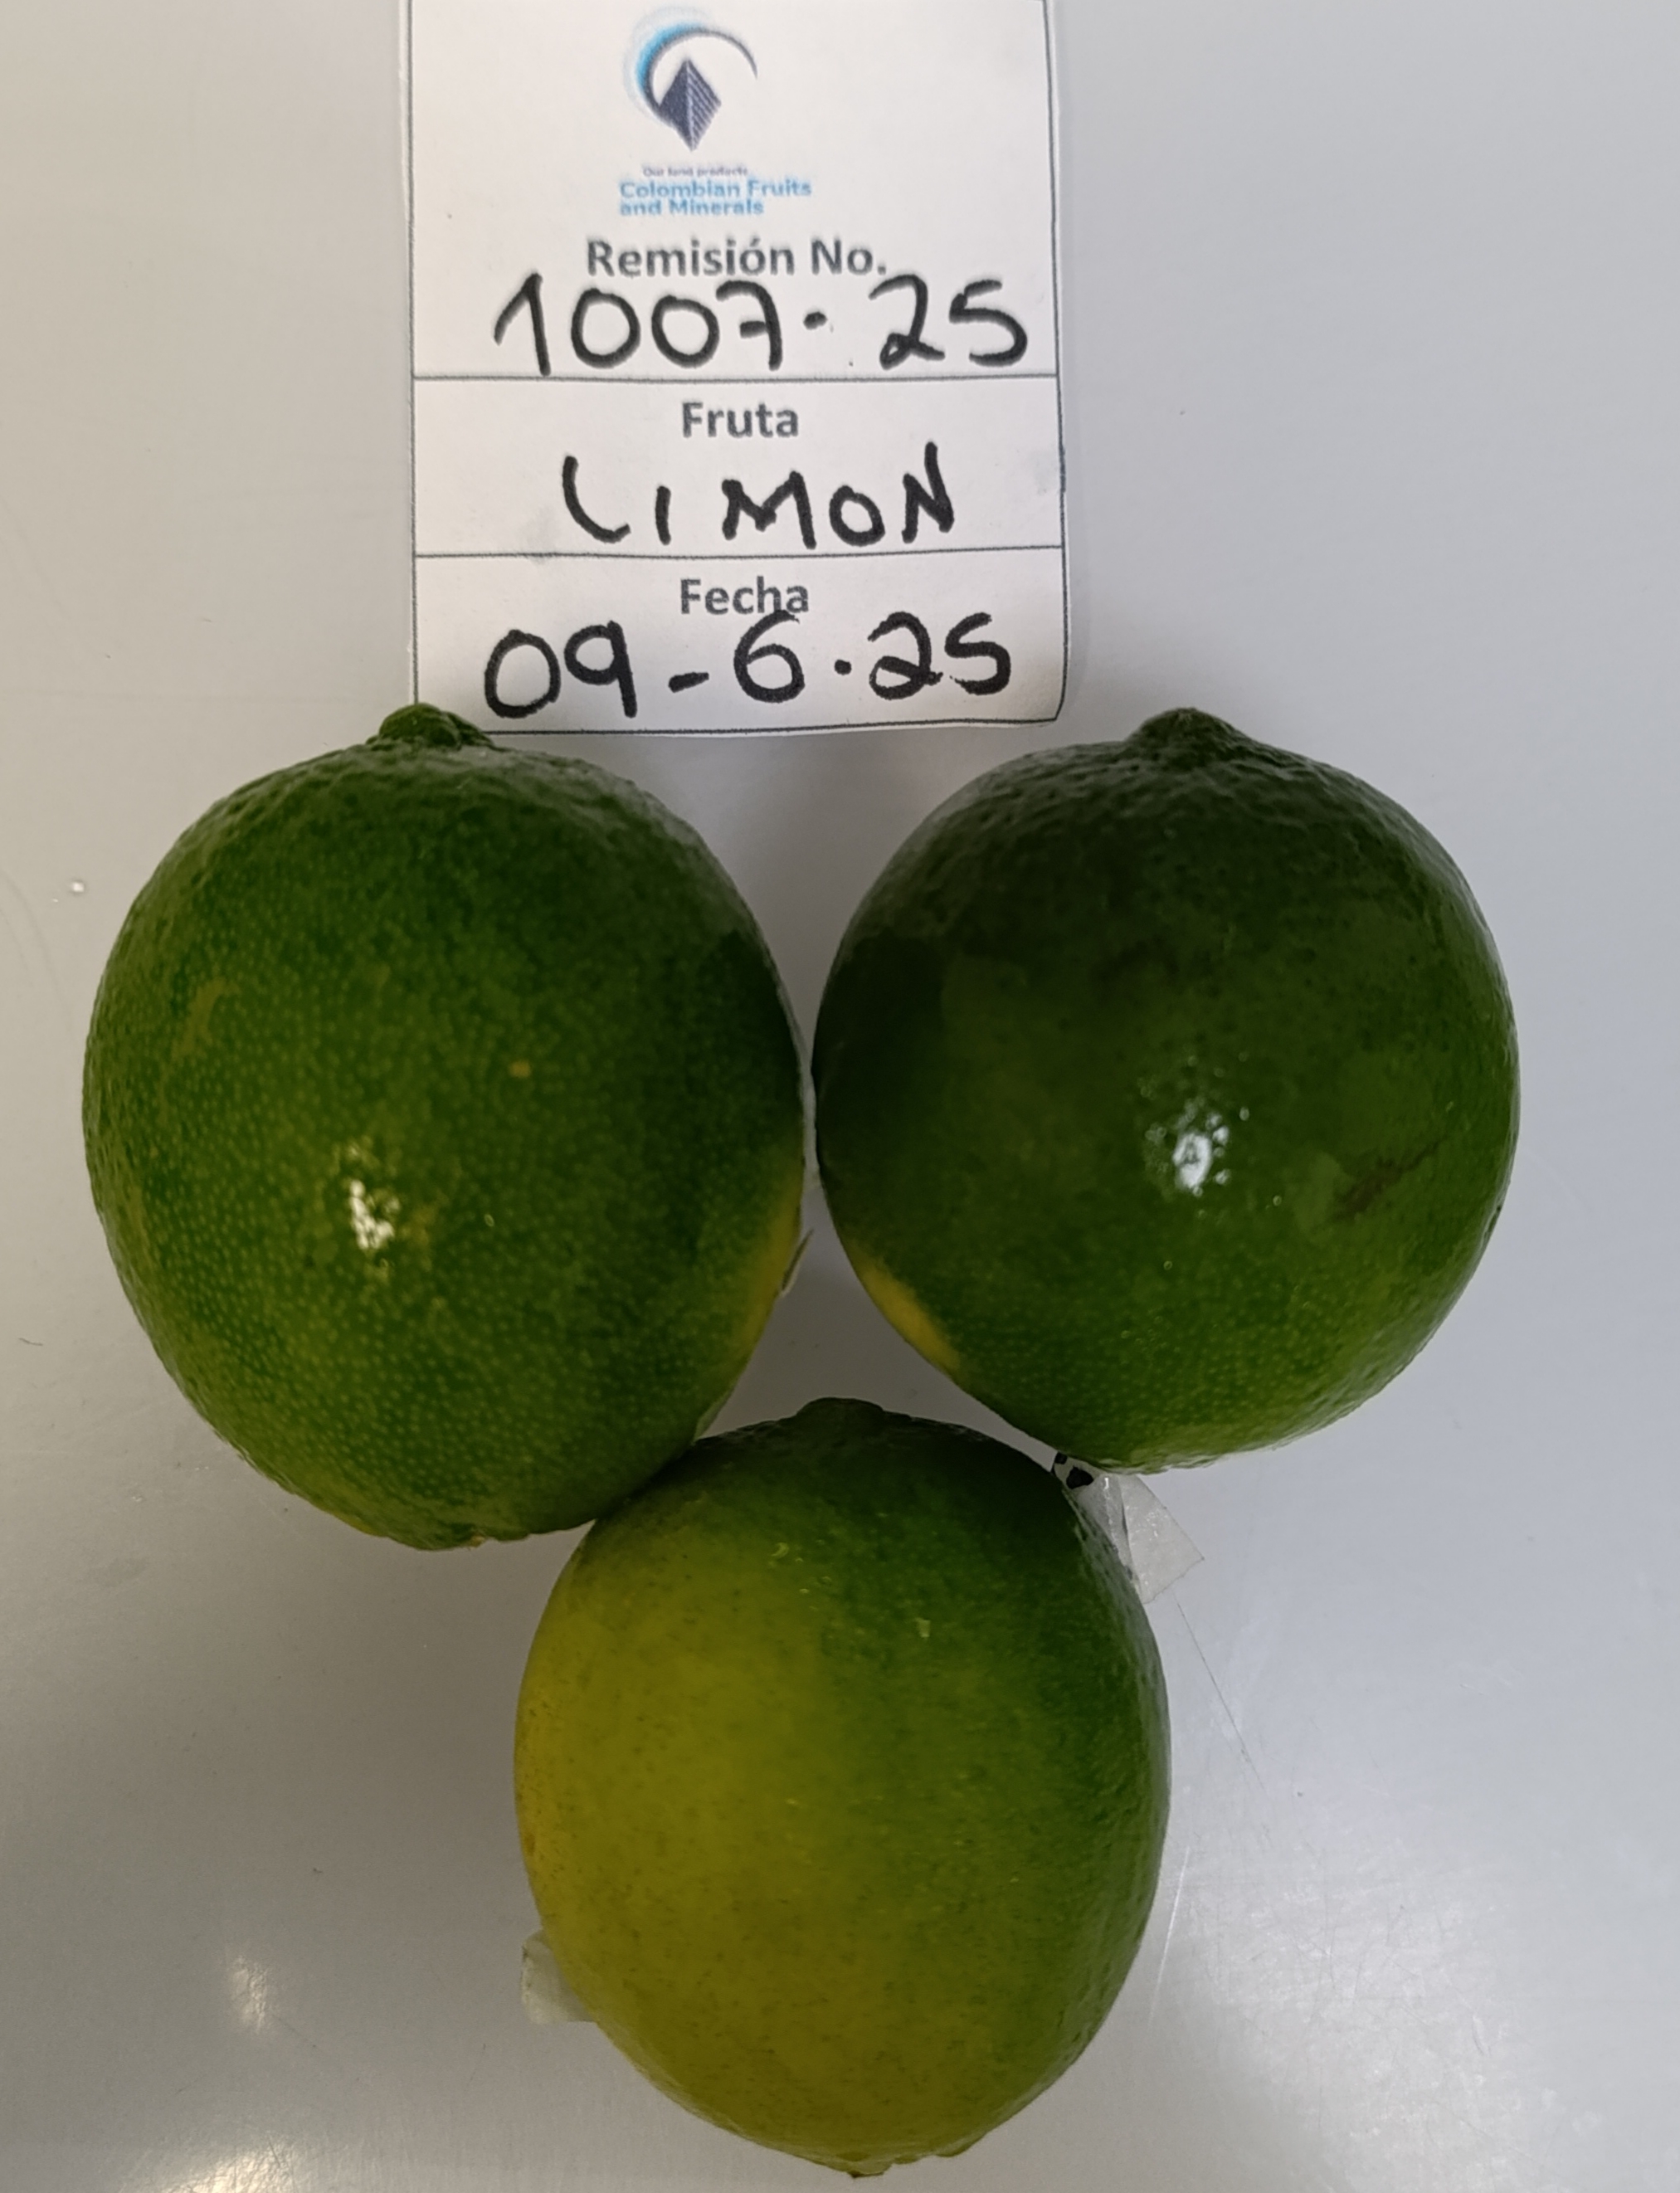 Our land products
Colombian Fruits
and Minerals
Remisión No.
1007-25
Fruta
LIMON
Fecha
09-6.25